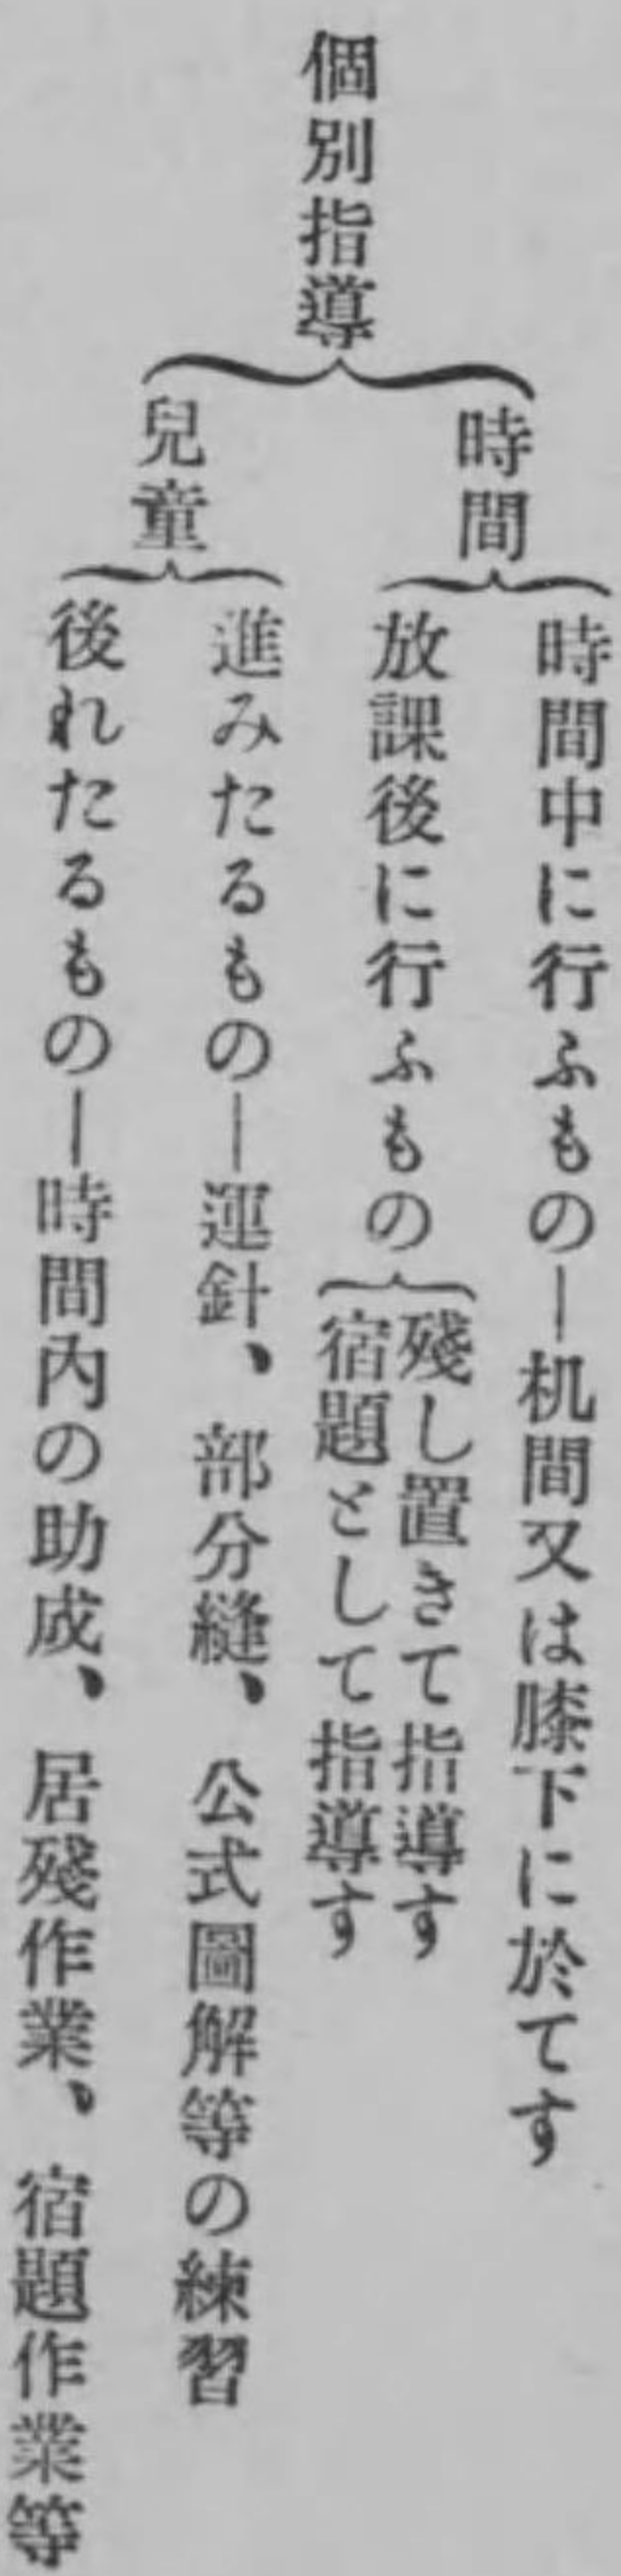 個別指導
時間
時間中に行ふもの―机間又は膝下に於てす
放課後に行ふもの
殘し置きて指導す
宿題として指導す
兒童
進みたるもの―運針、部分縫、公式圖解等の練習
後れたるもの―時間內の助成、居殘作業、宿題作業等